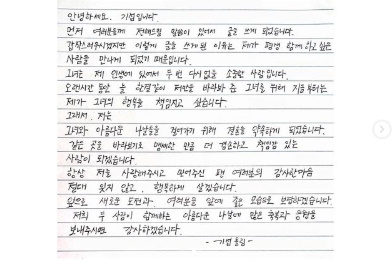 안녕하세요. 기범입니다.
먼저 여러분들께 전해드릴 말씀이 있어서 글을 쓰게 되었습니다.
갑작스러우시겠지만 이렇게 글을 쓰게 된 이유는 제가 평생 함께 하고 싶은
사람을 만나게 되었기 때문입니다.
그녀는 제 인생에 있어서 두 번 다시 없을 소중한 사람입니다.
오랜시간 동안 늘 한결같이 저만을 바라봐 준 그녀를 위해 지금부터는
제가 그녀의 행복을 책임지고 싶습니다.
그래서, 저는
그녀와 아름다운 나날들을 걸어가기 위해 결혼을 약속하게 되었습니다.
같은 곳을 바라보기로 맹세한 만큼 더 겸손하고 책임감 있는
사람이 되겠습니다.
항상 저를 사랑해주시고 믿어주신 팬 여러분의 감사한마음
절대 잊지 않고, 행복하게 살겠습니다.
앞으로 새로운 도전과, 여러분들 앞에 좋은 모습으로 보답하겠습니다.
저희 두 사람이 함께하는 아름다운 나날에 많은 축복과 응원을
보내주시면 감사하겠습니다.
- 기범 올림 -